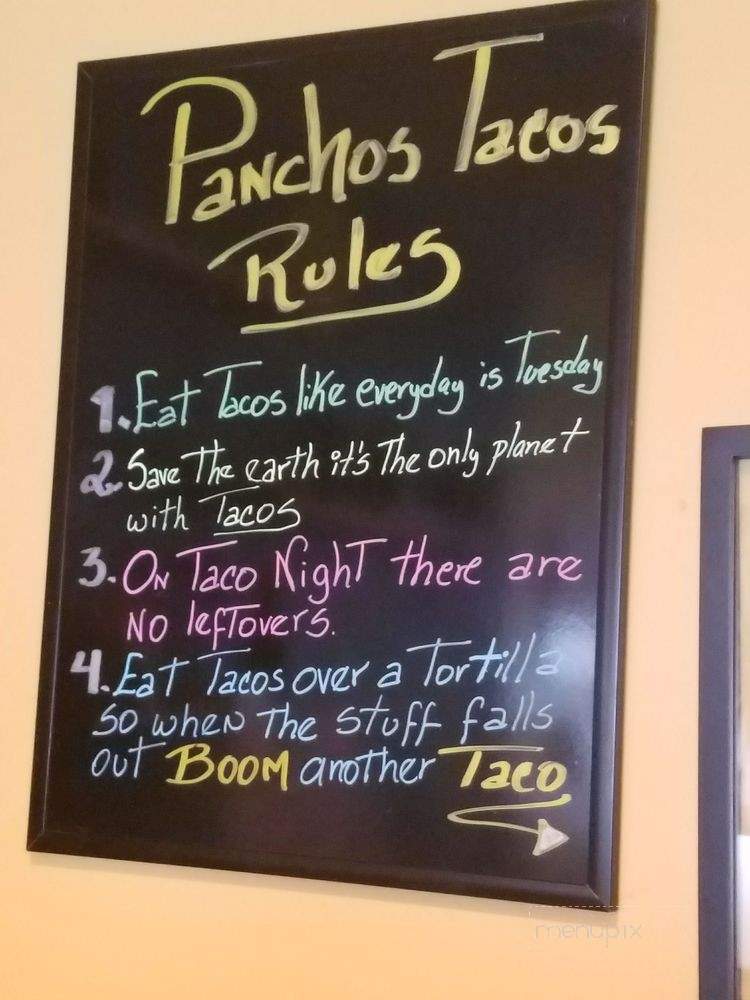 Panchos Tacos
Rules
1. Eat Tacos like everyday is Tuesday
2. Save The earth it's The only planet
with Tacos
3. On Taco Night there are
No leftovers.
4. Eat Tacos over a Tortilla
so when The stuff falls
out BOOM another Taco
menupix